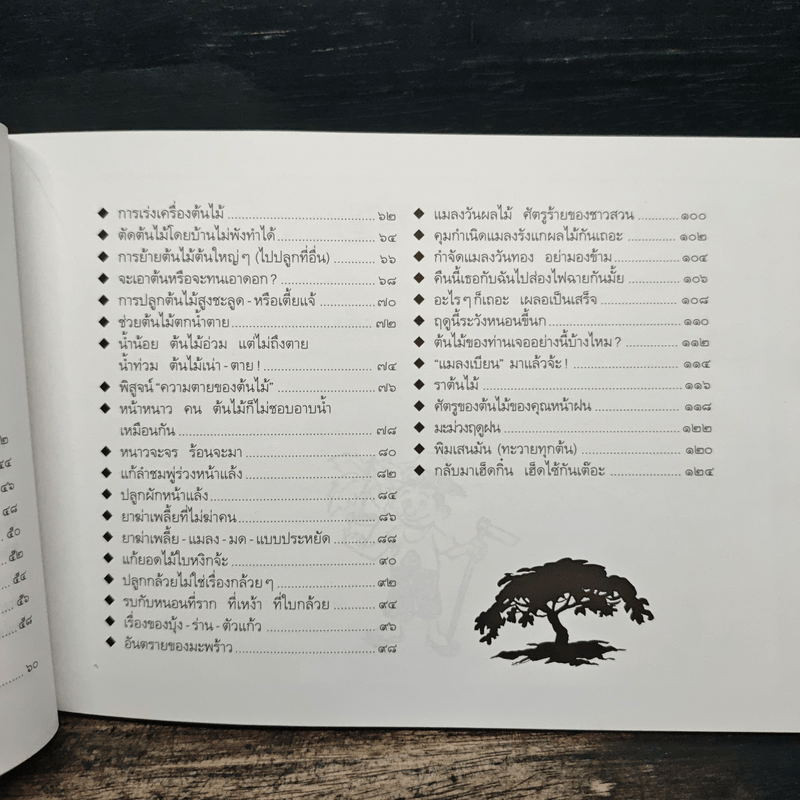 ๒
๕๔
๔๖
๔๘
๕๐
๕๒
๕๔
๕๖
๕๘
๖๐
◆ การเร่งเครื่องต้นไม้ ๖๒
◆ ตัดต้นไม้โดยบ้านไม่พังทำได้ ๖๔
◆ การย้ายต้นไม้ต้นใหญ่ๆ (ไปปลูกที่อื่น) ๖๖
◆ จะเอาต้นหรือจะทนเอาดอก? ๖๘
◆ การปลูกต้นไม้สูงชะลูด - หรือเตี้ยแจ้ ๗๐
◆ ช่วยต้นไม้ตกน้ำตาย ๗๒
◆ น้ำน้อย ต้นไม้อ่วม แต่ไม่ถึงตาย
น้ำท่วม ต้นไม้เน่า - ตาย! ๗๔
◆ พิสูจน์ “ความตายของต้นไม้” ๗๖
◆ หน้าหนาว คน ต้นไม้ก็ไม่ชอบอาบน้ำ
เหมือนกัน ๗๘
◆ หนาวจะจร ร้อนจะมา ๘๐
◆ แก้ลำชมพู่ร่วงหน้าแล้ง ๘๒
◆ ปลูกผักหน้าแล้ง ๘๔
◆ ยาฆ่าเพลี้ยที่ไม่ฆ่าคน ๘๖
◆ ยาฆ่าเพลี้ย - แมลง - มด - แบบประหยัด ๘๘
◆ แก้ยอดไม้ใบหงิกจ้ะ ๙๐
◆ ปลูกกล้วยไม่ใช่เรื่องกล้วยๆ ๙๒
◆ รบกับหนอนที่ราก ที่เหง้า ที่ใบกล้วย ๙๔
◆ เรื่องของบุ้ง - ร่าน - ตัวแก้ว ๙๖
◆ อันตรายของมะพร้าว ๙๘
◆ แมลงวันผลไม้ ศัตรูร้ายของชาวสวน ๑๐๐
◆ คุมกำเนิดแมลงรังแกผลไม้กันเถอะ ๑๐๒
◆ กำจัดแมลงวันทอง อย่ามองข้าม ๑๐๔
◆ คืนนี้เธอกับฉันไปส่องไฟฉายกันมั้ย ๑๐๖
◆ อะไรๆ ก็เถอะ เผลอเป็นเสร็จ ๑๐๘
◆ ฤดูนี้ระวังหนอนขี้นก ๑๑๐
◆ ต้นไม้ของท่านเจออย่างนี้บ้างไหม? ๑๑๒
◆ “แมลงเบียน” มาแล้วจ้ะ! ๑๑๔
◆ ราต้นไม้ ๑๑๖
◆ ศัตรูของต้นไม้ของคุณหน้าฝน ๑๑๘
◆ มะม่วงฤดูฝน ๑๒๒
◆ พิมเสนมัน (ทะวายทุกต้น) ๑๒๐
◆ กลับมาเฮ็ดกิ๋น เฮ็ดไซ้กันเต๊อะ ๑๒๔